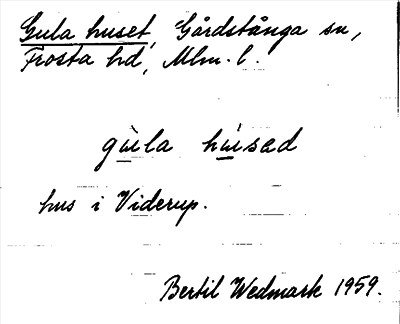 Gula huset, Gårdstånga sn,
Frosta hd, Mlm. l.
gùla húsad
hus i Viderup.
Bertil Wedmark 1959.